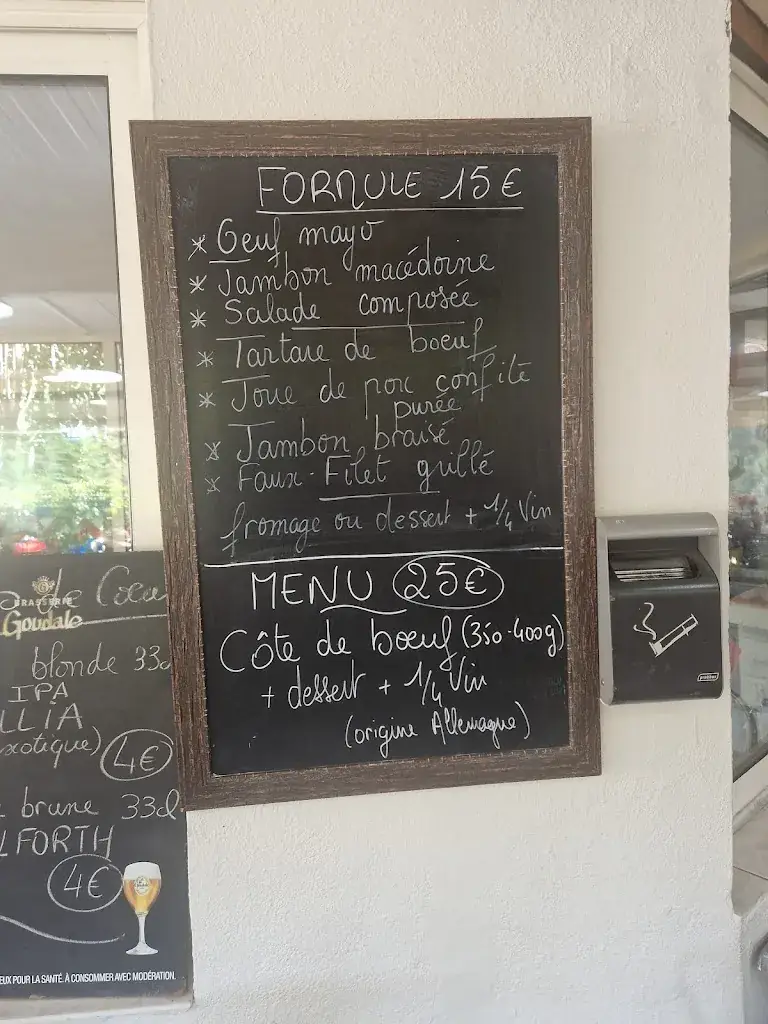 FORMULE 15€
* Oeuf mayo
* Jambon macédoine
* Salade composée
* Tartare de boeuf
* Joue de porc confite
purée
* Jambon braisé
* Faux-Filet grillé
fromage ou dessert + 1/4 Vin
MENU 25€
Côte de boeuf (350-400g)
+ dessert + 1/4 Vin
(origine Allemagne)
BRASSERIE
Goudale
blonde 33c
IPA
LLIA
xotique)
4€
brune 33cl
LFORTH
4€
EUX POUR LA SANTÉ. À CONSOMMER AVEC MODÉRATION.